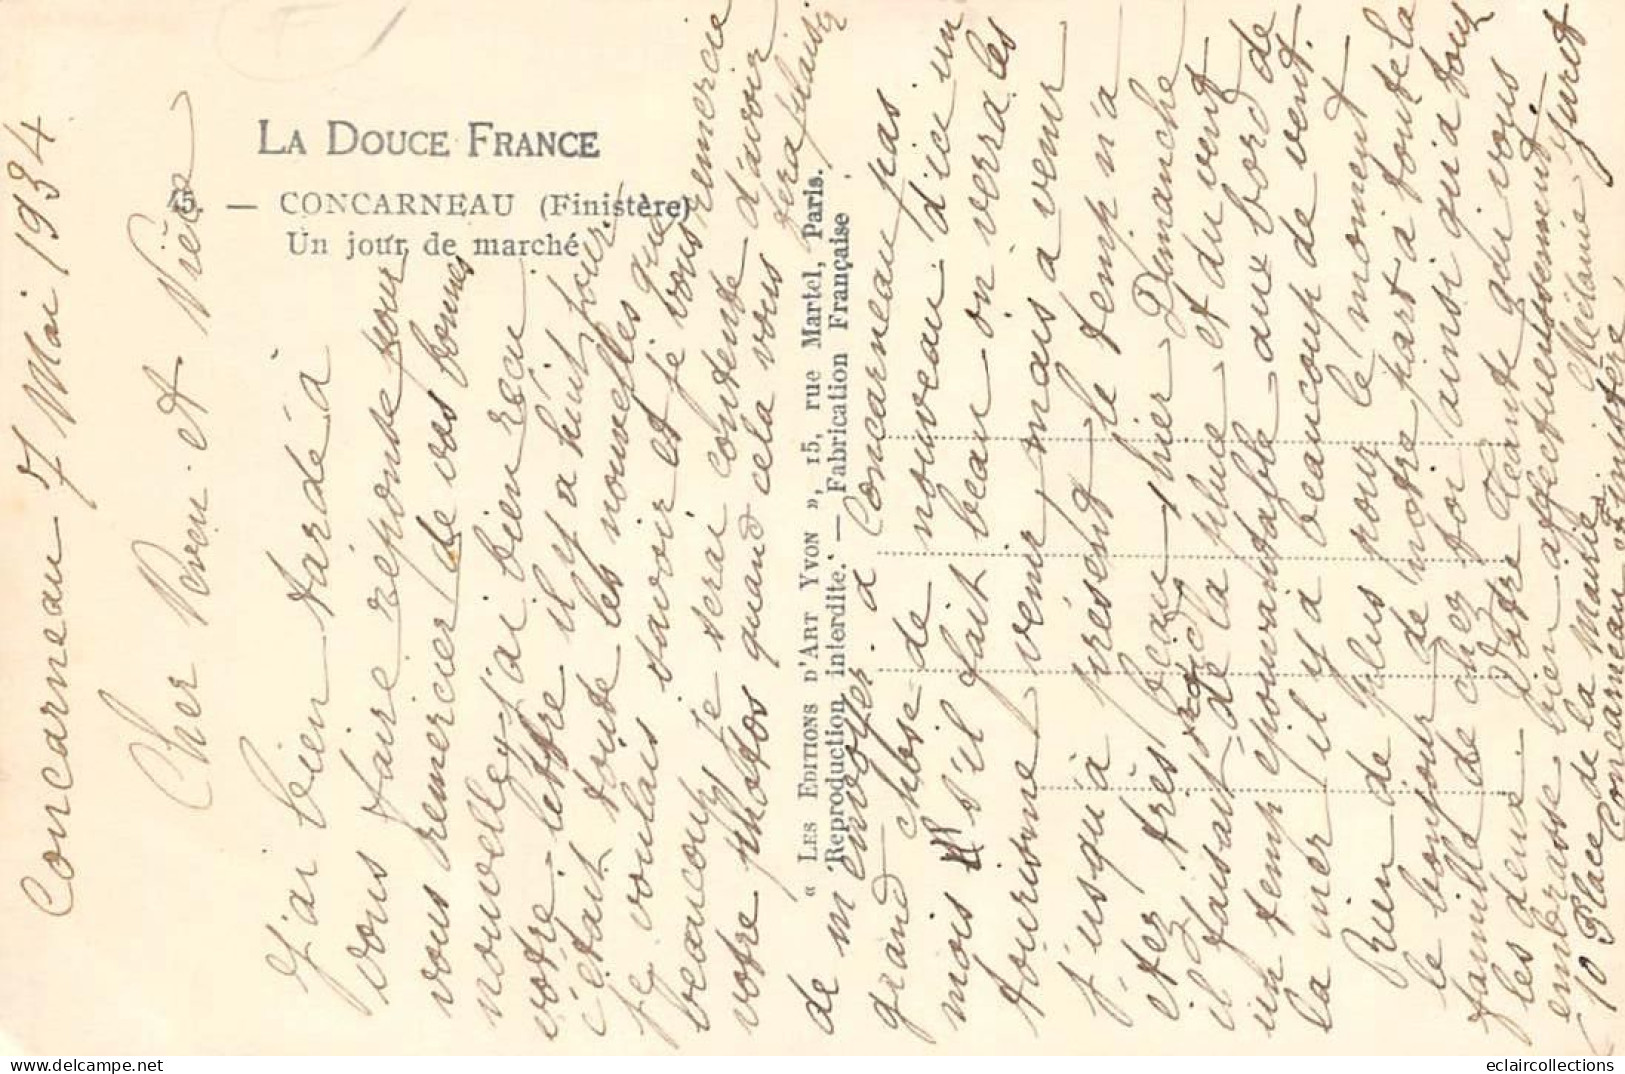 LA DOUCE FRANCE
45. — CONCARNEAU (Finistère)
Un jour de marché
« LES EDITIONS D'ART YVON », 15, rue Martel, Paris.
Reproduction interdite. — Fabrication Française
Concarneau 7 Mai 1934
Cher Neveu et Nièce
J'ai bien tardé à
vous faire réponse pour
vous remercier de vos bonnes
nouvelles j'ai bien reçu
votre lettre il y a huit jour
c'etait toute les nouvelles que
je voulais savoir et je vous remercie
beaucoup je serai contente d'avoir
votre photos quand cela vous fera plaisir
de m'envoyer a Concarneau pas
grand chose de nouveau d'ice un
mois s'il fait beau on verra les
tourisme venir mais a venir
j'usqu'à présent le temp n'a
etez très beau hier Demanche
il faisait de la pluie et du vent
un temp epouvantable aux bord de
la mer il y a beaucoup de vent.
Rien de plus pour le moment
le bonjour de notre part a toute la
famille de chez toi ainsi qu'a tous
les deux. Votre Tante qui vous
embrasse bien affectueusement
Mélanie Juret
10 Place de la Mairie
Concarneau Finistère
eclaircollections